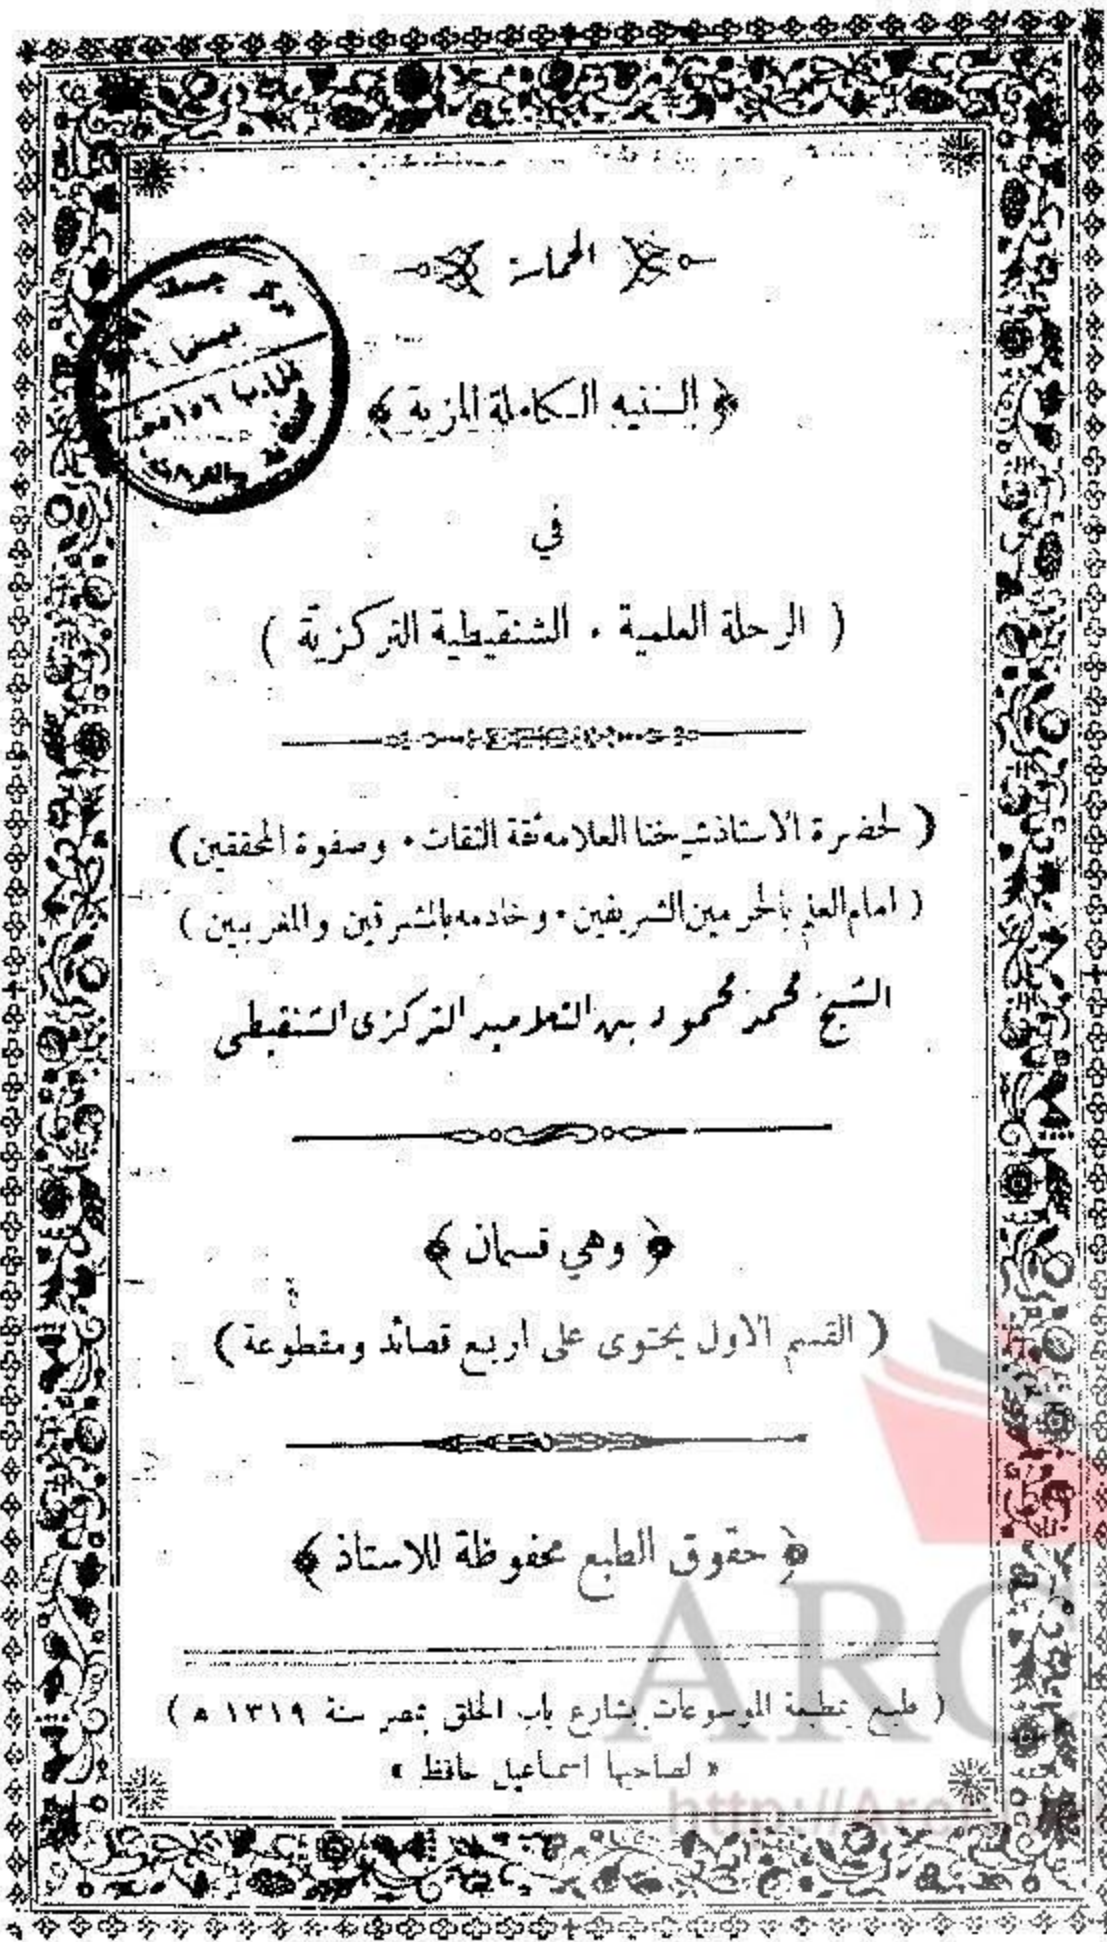 الحماسة
﴿ السنيه الكاملة المزية ﴾
في
( الرحلة العلمية . الشنقيطية التركزية )
( لحضرة الاستاذ شيخنا العلامه ثقة الثقات . وصفوة المحققين )
( امام العلم بالحرمين الشريفين . وخادمه بالمشرقين والمغربيين )
الشيخ محمد محمود بن التلاميد التركزى الشنقيطى
﴿ وهي قسمان ﴾
( القسم الاول يحتوى على اربع قصائد ومقطوعة )
﴿ حقوق الطبع محفوظة للاستاذ ﴾
( طبع بمطبعة الموسوعات بشارع باب الخلق بمصر سنة ١٣١٩ ه )
« لصاحبها اسماعيل حافظ »
ARC
http://Arc